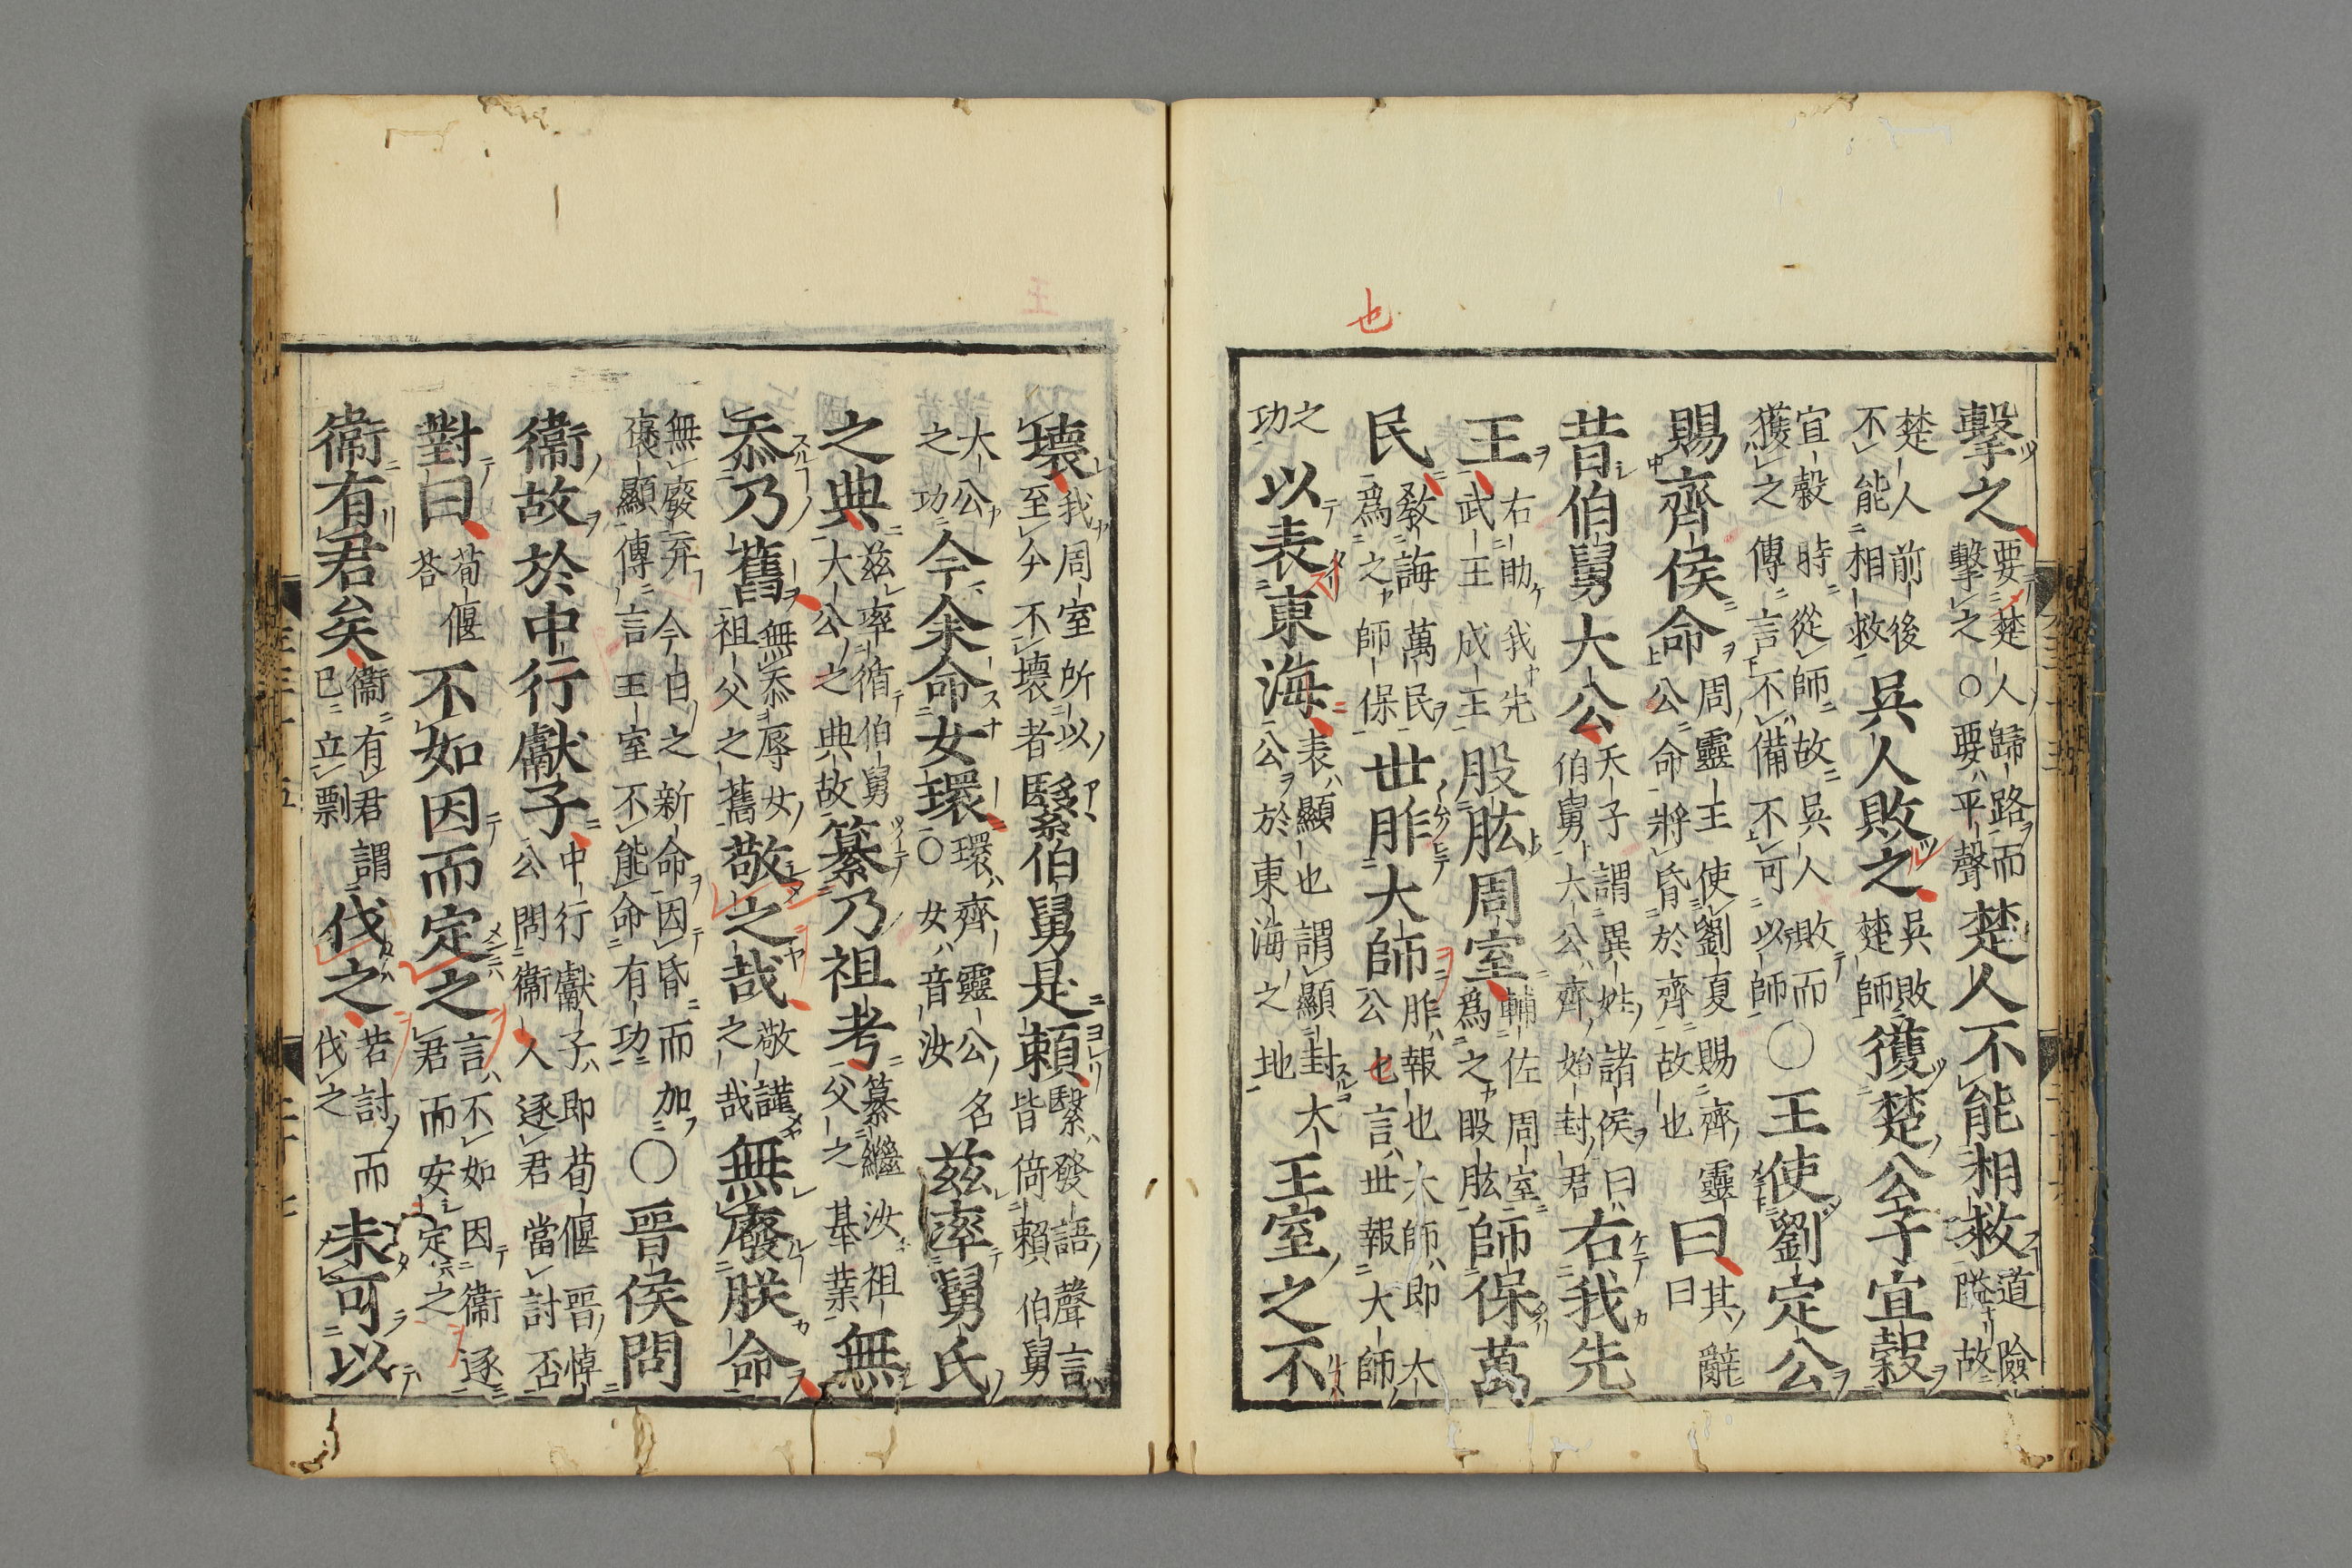 擊之要楚人歸路而擊之○要平聲楚人不能相救道險隘故
楚人前後不能相救吳人敗之吳敗楚師獲楚公子宜穀
宜穀時從師故吳人敗而獲之傳言不備不可以師○王使劉定公
賜齊侯命周靈王使劉夏賜齊靈公命將昏於齊故也曰其辭曰
昔伯舅大公天子謂異姓諸侯曰伯舅大公齊始封君右我先
王右助我先王武王成王股肱周室輔佐周室爲之股肱師保萬
民敎誨萬民爲之師保世胙大師胙報也大師即太公也言世報大師
之功以表東海表顯也謂顯封太公於東海之地王室之不
壞我周室所以至今不壞者繄伯舅是賴繄發語聲言皆倚賴伯舅
大公之功今余命女環環齊靈公名○女音汝茲率舅氏
之典茲率循伯舅大公之典故纂乃祖考纂繼汝祖父之基業無
忝乃舊無忝辱女祖父之舊敬之哉敬謹之哉無廢朕命
無廢弃今日之新命因昏而加褒顯傳言王室不能命有功○晉侯問
衞故於中行獻子中行獻子即荀偃晉悼公問衞人逐君當討否
對曰荀偃荅不如因而定之言不如因衞逐君而安定之
衞有君矣衞有君謂已立剽伐之若討而伐之未可以
也